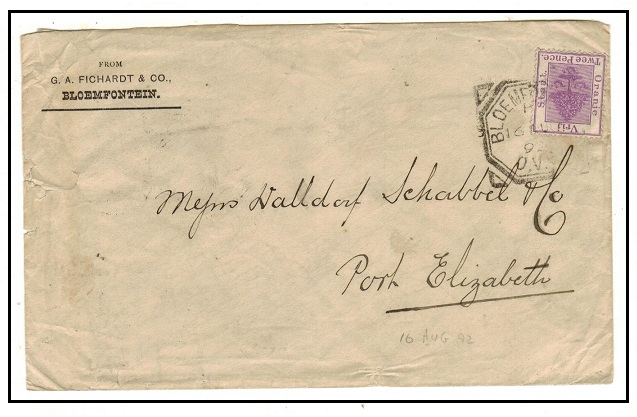 FROM
G. A. FICHARDT & CO.,
BLOEMFONTEIN.
Oranje
Vrij
Staat.
Twee Pence.
16
9
O.V.
Messrs Walldorf Schabbel & Co
Port Elizabeth
16 AUG 92